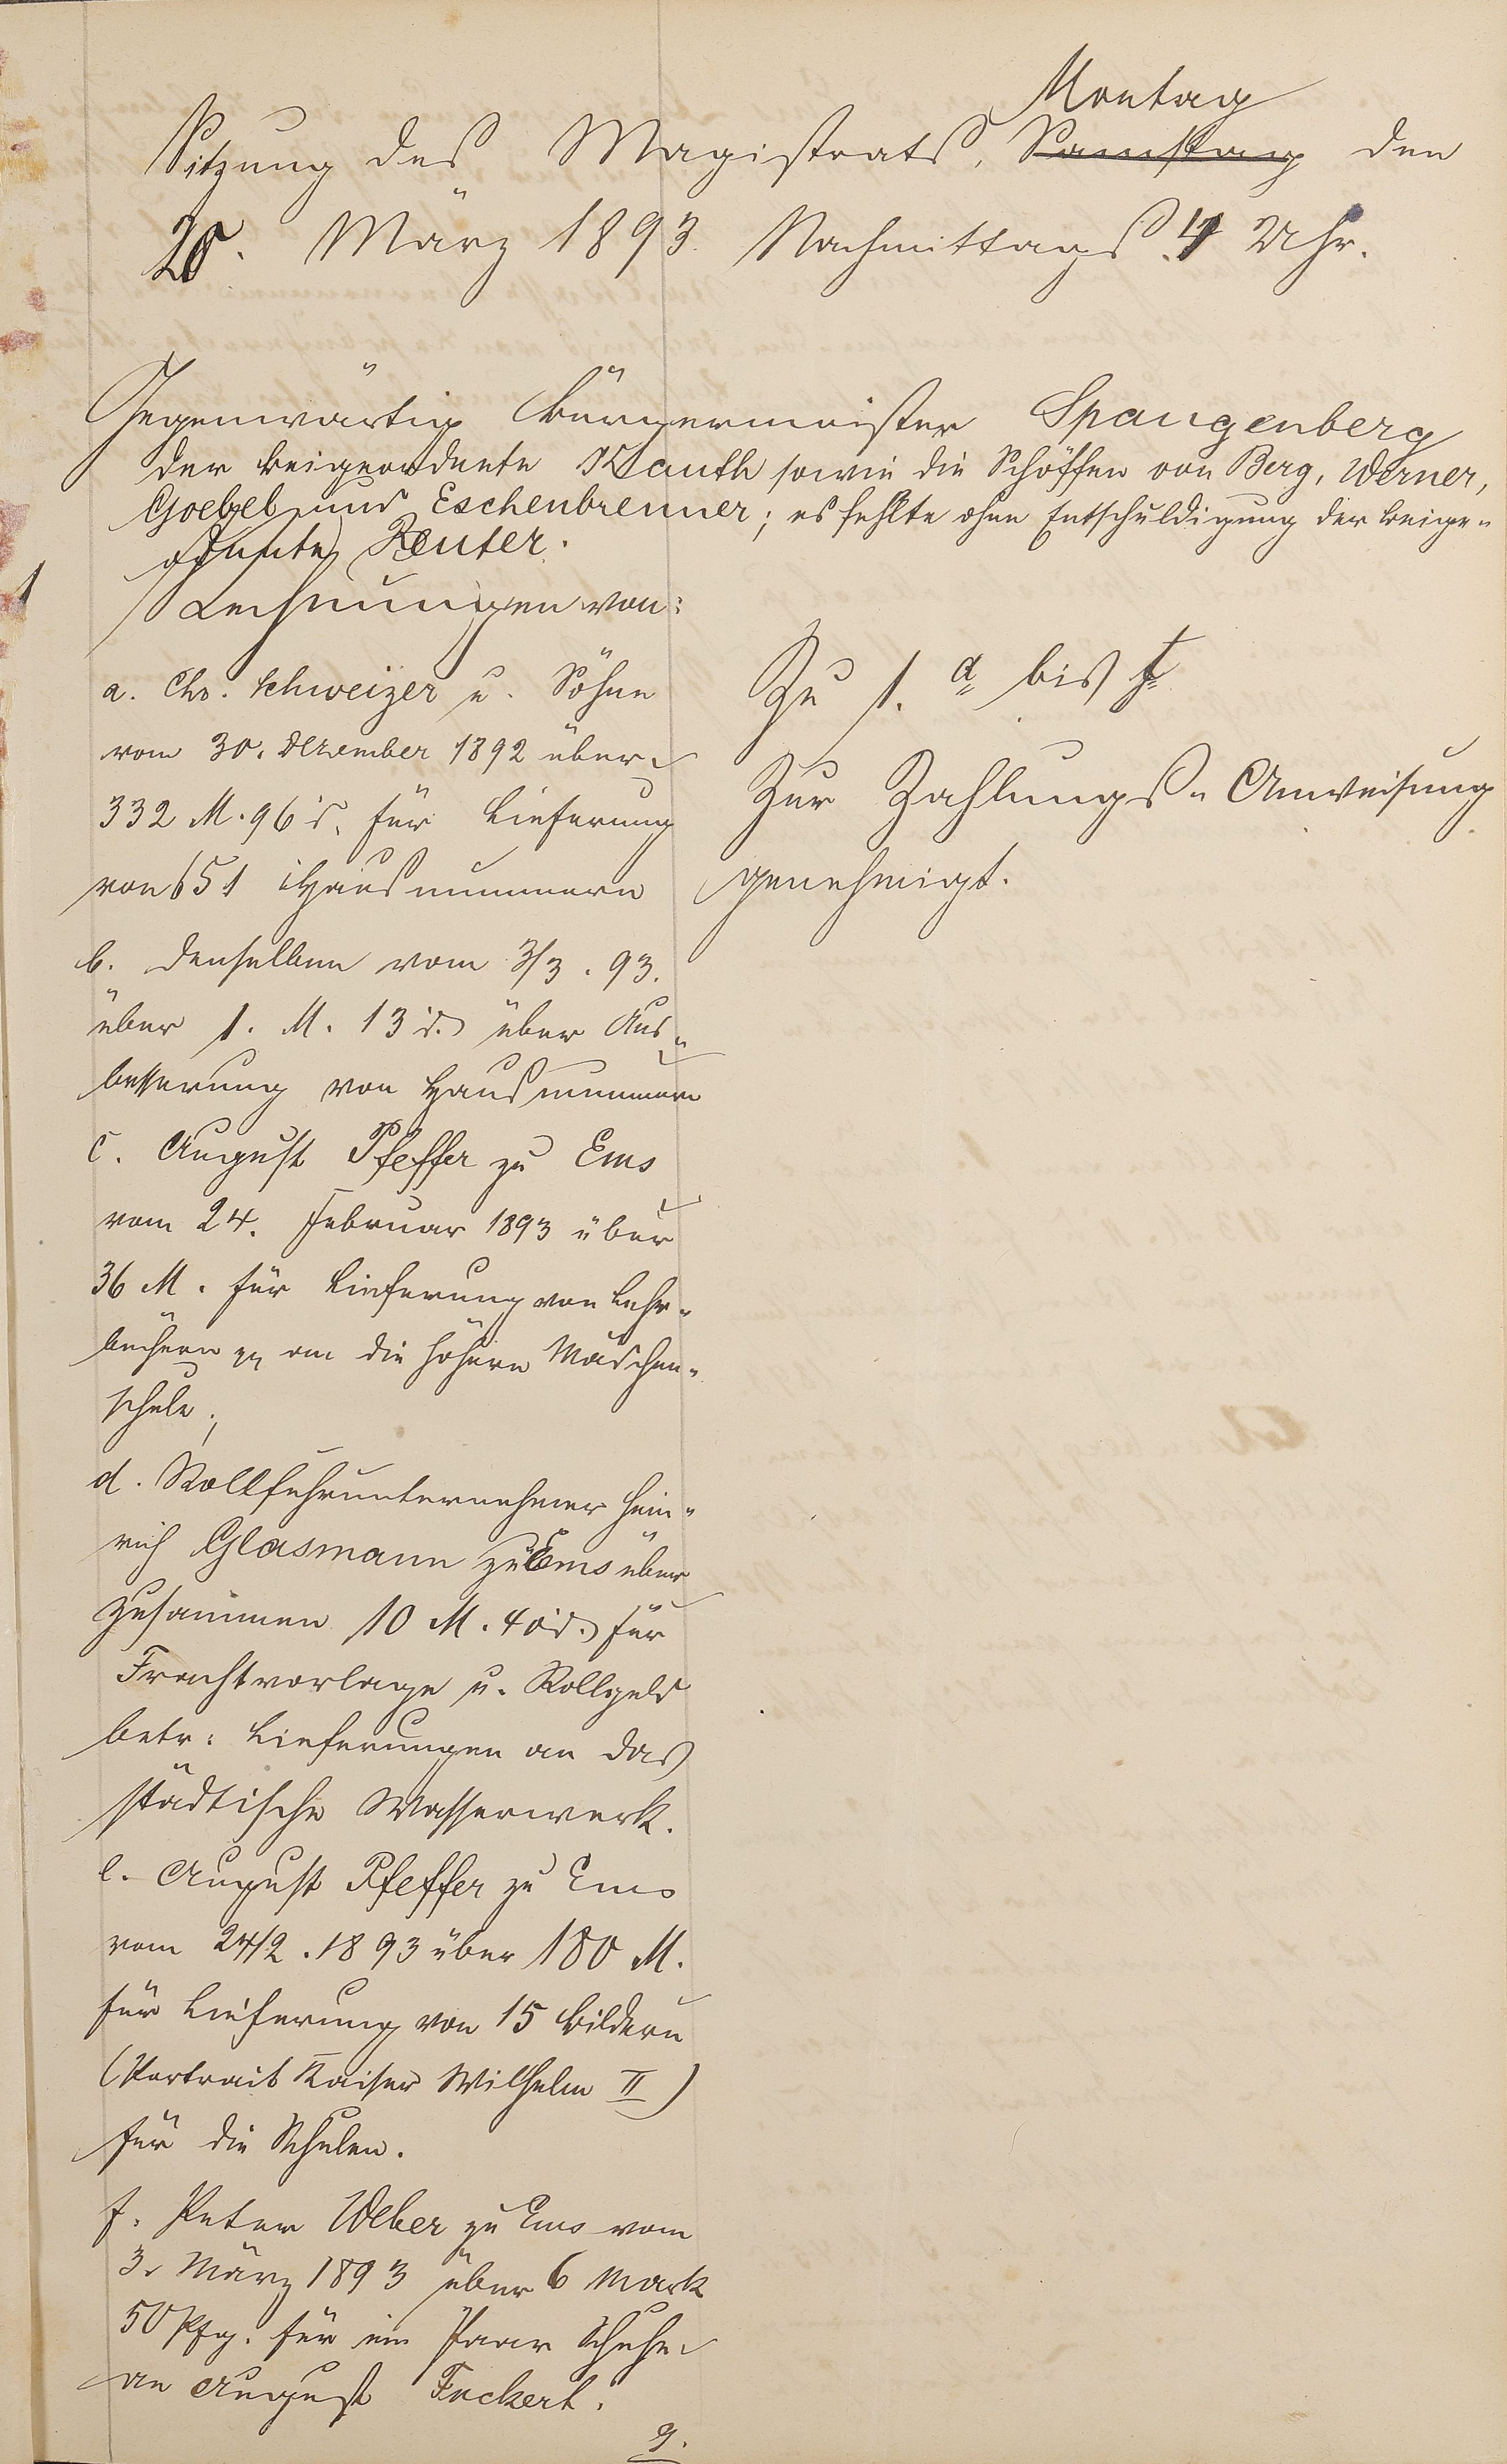 Montag
Sitzung des Magistrats, Samstag den
20. März 1893 Nachmittags 4 Uhr.
Gegenwärtig Bürgermeister Spangenberg
der Beigeordnete Kauth sowie die Schöffen von Berg, Werner,
Goebel und Eschenbrenner; es fehlte ohne Entschuldigung der Beige-
ordnete Reuter.
1 Rechnungen von:
a. Chr. Schweizer u. Söhne
vom 30. Dezember 1892 über
332 M. 96 d. für Lieferung
von 651 Hausnummern
b. denselben vom 3/3. 93.
über 1. M. 13 d. über Aus-
besserung von Hausnummern
c. August Pfeffer zu Ems
vom 24. Februar 1893 über
36 M. für Lieferung von Lehr-
büchern pp an die höhere Mädchen-
schule;
d. Rollfuhrunternehmer Hein-
rich Glasmann zu Ems über
zusammen 10 M. 40 d. für
Frachtvorlage u. Rollgeld
betr: Lieferungen an das
städtische Wasserwerk.
e. August Pfeffer zu Ems
vom 24/2. 1893 über 180 M.
für Lieferung von 15 Bildern
(Portrait Kaiser Wilhelm II)
für die Schulen.
f. Peter Weber zu Ems vom
3. März 1893 über 6 Mark
50 Pfg. für ein Paar Schuhe
an August Fuckert.
g.
Zu 1. a bis f
Zur Zahlungs-Anweisung
genehmigt.